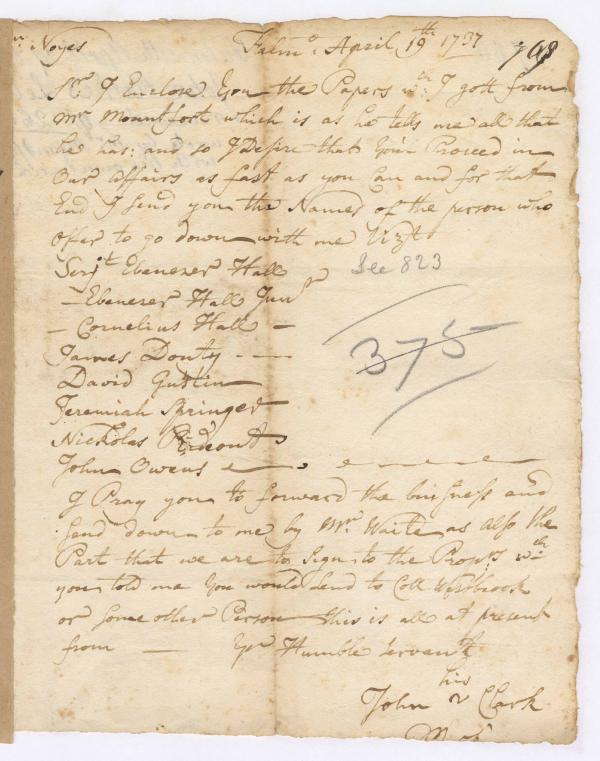 Mr Noyes Falmo. April 19th 1737 798
Sr. I Enclose You the Papers wch. I gott from
Mr Mountfort which is as he tells me all that
he has: and so I Desire that You'l Proceed in
Our affairs as fast as you Can and for that
End I send you the Names of the person who
offer to go down with me Vizt
Serjt. Ebenezer Hall
See 823
– Ebenezer Hall Junr
– Cornelius Hall –
375
James Douty – –
David Gustin
Jeremiah Springer
Nicholas Rideout
John Owens
I Pray you to forward the buisness and
send down to me by Mr. Waite as Also the
Part that we are to Sign to the Proprs. wch
you told me You would send to Coll Westbrook
or some other Person this is all at present
from — Yor Humble Servant
his
John Clark